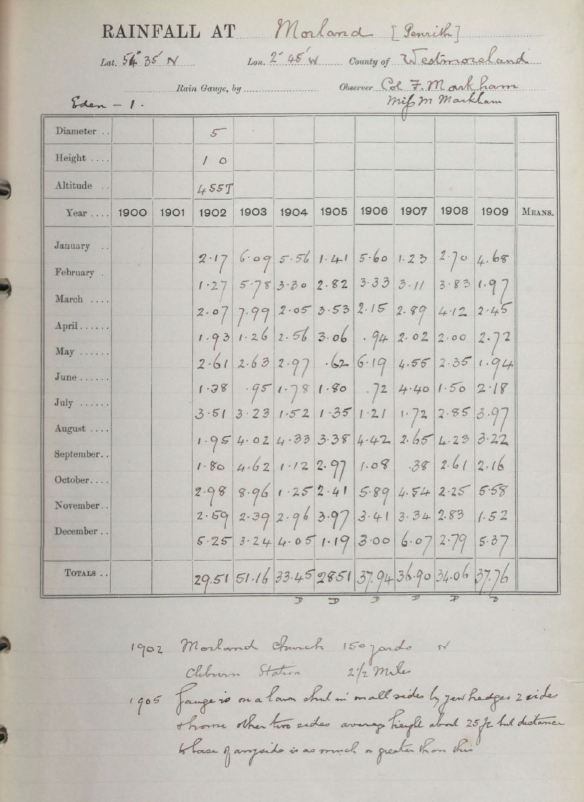 RAINFALL AT Morland [Penrith]
Lat. 54° 35' N Lon. 2° 45' W County of Westmoreland
Rain Gauge, by Observer Col F. Markham
Eden - 1. Miss M Markham
Diameter .. 5
Height .... 1 0
Altitude .. 455T
Year .... 1900 1901 1902 1903 1904 1905 1906 1907 1908 1909 MEANS.
January 2.17 6.09 5.56 1.41 5.60 1.23 2.70 4.68
February . 1.27 5.78 3.30 2.82 3.33 3.11 3.83 1.97
March .... 2.07 7.99 2.05 3.53 2.15 2.89 4.12 2.45
April ...... 1.93 1.26 2.56 3.06 .94 2.02 2.00 2.72
May ...... 2.61 2.63 2.97 .62 6.19 4.55 2.35 1.94
June ...... 1.38 .95 1.78 1.80 .72 4.40 1.50 2.18
July ...... 3.51 3.23 1.52 1.35 1.21 1.72 2.85 3.97
August .... 1.95 4.02 4.33 3.38 4.42 2.65 4.23 3.22
September.. 1.80 4.62 1.12 2.97 1.08 .38 2.61 2.16
October.... 2.98 8.96 1.25 2.41 5.89 4.54 2.25 5.58
November .. 2.59 2.39 2.96 3.97 3.41 3.34 2.83 1.52
December .. 5.25 3.24 4.05 1.19 3.00 6.07 2.79 5.37
TOTALS .. 29.51 51.16 33.45 28.51 37.94 36.90 34.06 37.76
1902 Morland Church 150 yards N
Cliburn Station 2½ Miles
1905 Gauge is on a lawn shut in on all sides by yew hedges 2 sides
& house other two sides average height about 25 ft but distance
to base of any side is as much or greater than this